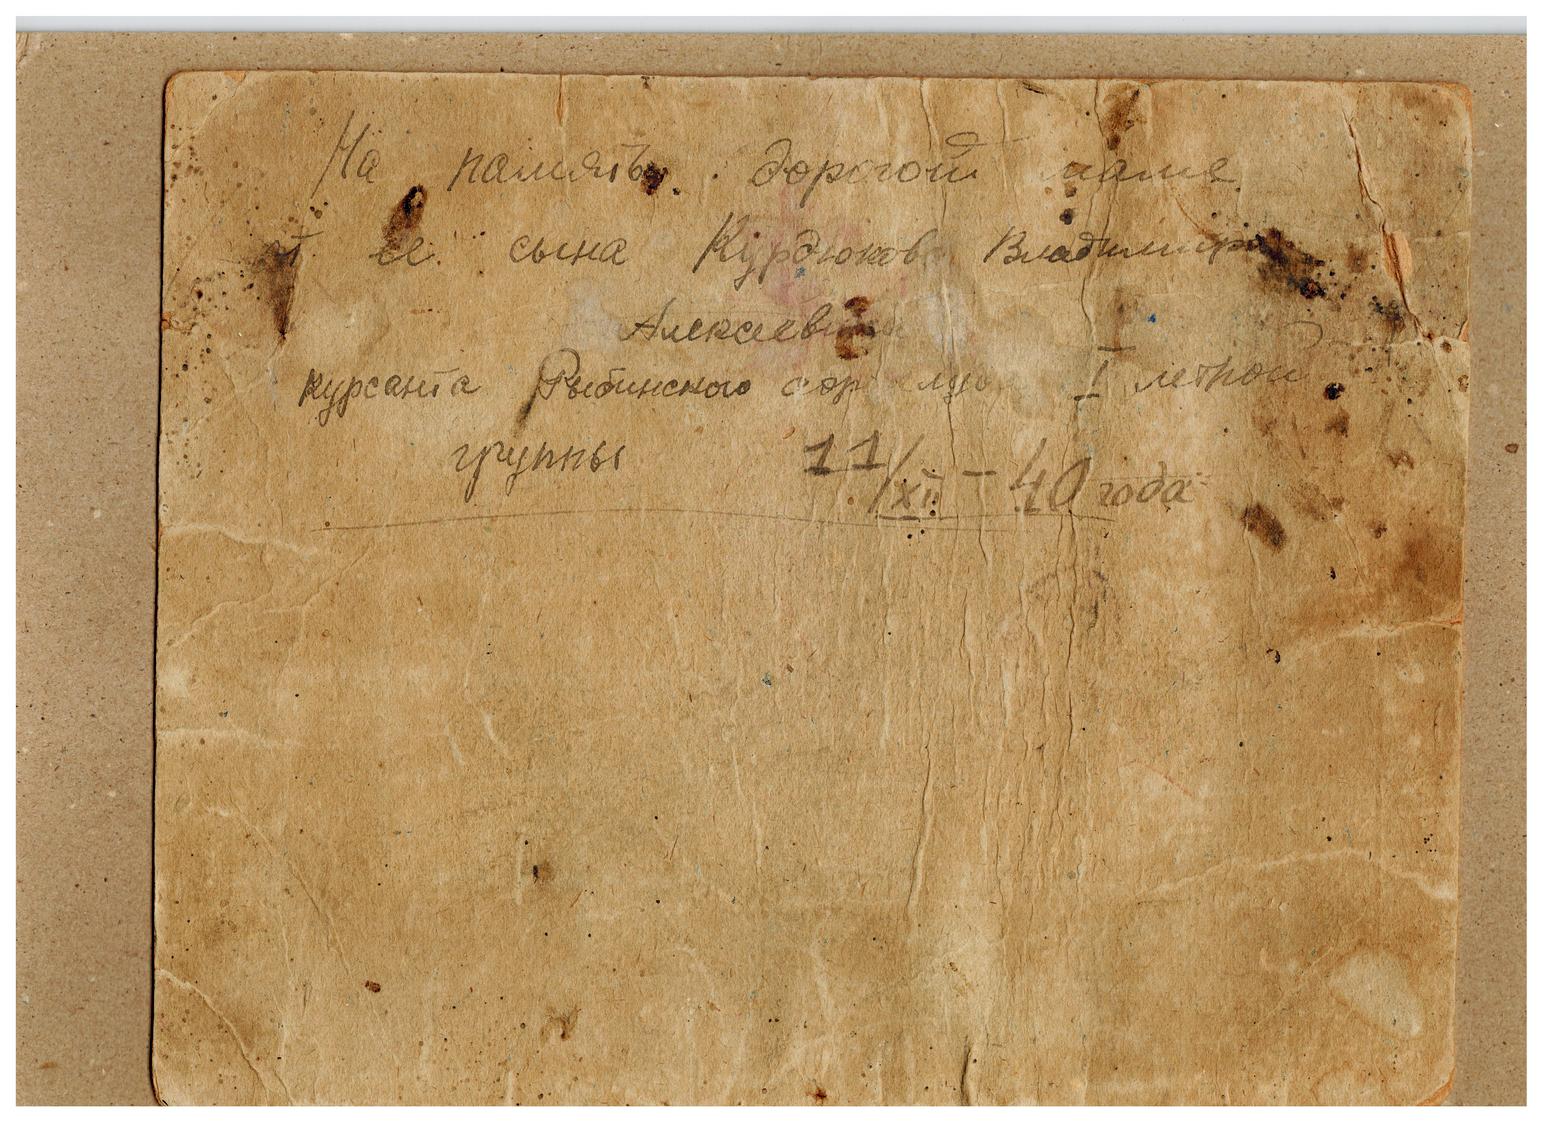 На память дорогой маме
от ее сына Курдюкова Владимира
Алексеевича
курсанта Рыбинского аэроклуба I летной
группы 11/XII – 40 года